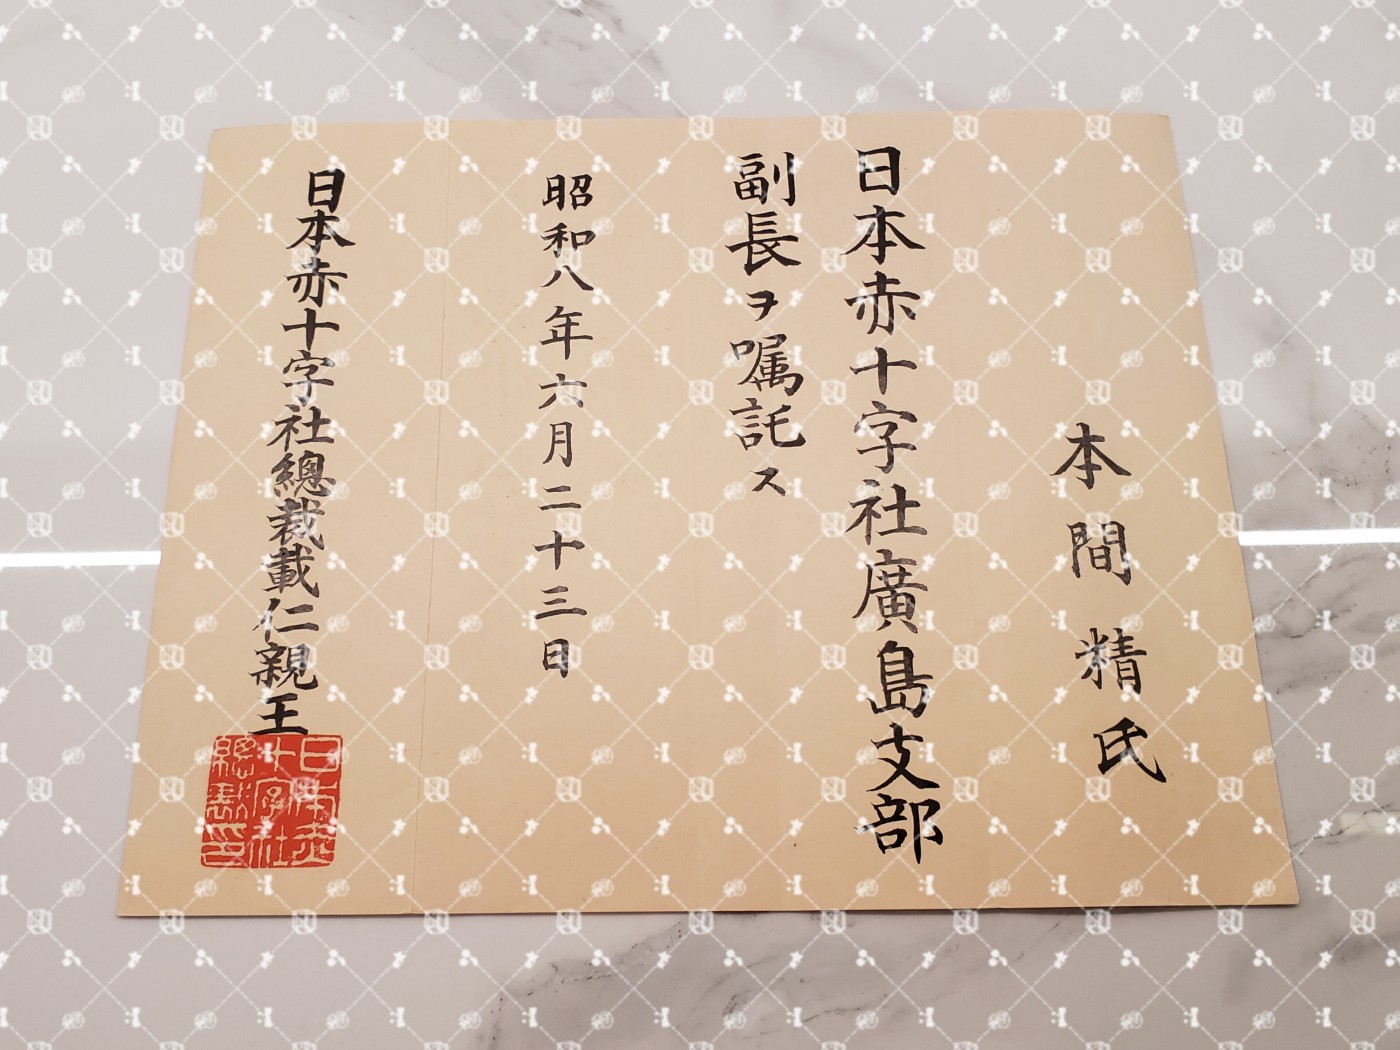 本間精氏
日本赤十字社廣島支部
副長ヲ嘱託ス
昭和八年六月二十三日
日本赤十字社總裁載仁親王
日本赤
十字社
總裁印